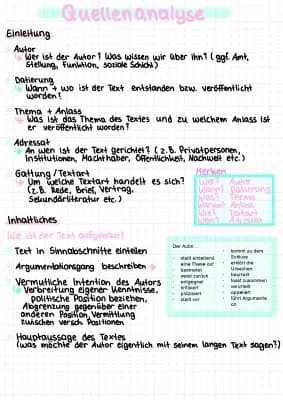 Quellenanalyse
Einleitung
Autor
↳ Wer ist der Autor? Was wissen wir über ihn? (ggf. Amt,
Stellung, Funktion, soziale Schicht)
Datierung
↳ Wann + wo ist der Text entstanden bzw. veröffentlicht
worden?
Thema + Anlass
↳ Was ist das Thema des Textes und zu welchem Anlass ist
er veröffentlicht worden?
Adressat
↳ An wen ist der Text gerichtet? (z.B. Privatpersonen,
Institutionen, Machthaber, Öffentlichkeit, Nachwelt etc.)
Gattung / Textart
↳ Um welche Textart handelt es sich?
(z.B. Rede, Brief, Vertrag,
Sekundärliteratur etc.)
Merken
Wer? Autor
Wann? Datierung
Was? Thema
Warum? Anlass
Wie? Textart
Wen? Adressat
Inhaltliches
Wie ist der Text aufgebaut?
Text in Sinnabschnitte einteilen
Argumentationsgang beschreiben
Vermutliche Intention des Autors
↳ Verbreitung eigener Kenntnisse,
politische Position beziehen,
Abgrenzung gegenüber einer
anderen Position, Vermittlung
zwischen versch. Positionen
Hauptaussage des Textes
(was möchte der Autor eigentlich mit seinem langen Text sagen?)
Der Autor...
stellt einleitend
eine These auf
bemerkt
weist zurück
entgegnet
kritisiert
präzisiert
stellt vor
kommt zu dem
Schluss
erklärt die
Ursachen
beurteilt
fasst zusammen
verurteilt
appelliert
führt Argumente
an